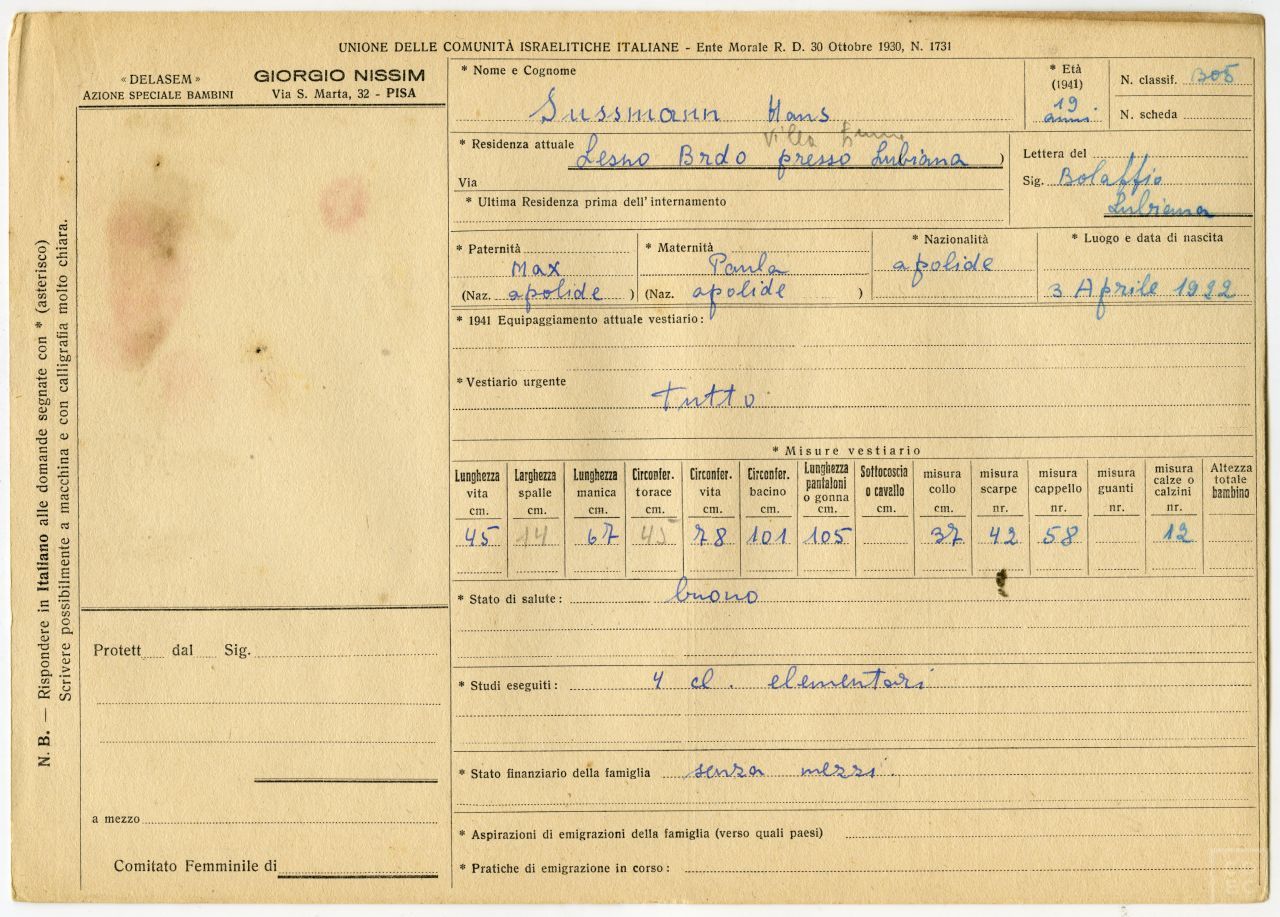 UNIONE DELLE COMUNITÀ ISRAELITICHE ITALIANE - Ente Morale R. D. 30 Ottobre 1930, N. 1731
« DELASEM »
AZIONE SPECIALE BAMBINI
GIORGIO NISSIM
Via S. Marta, 32 - PISA
* Nome e Cognome
Sussmann Hans
* Età
(1941)
19
anni
N. classif. 305
N. scheda
* Residenza attuale Lesno Brdo presso Lubiana )
Villa
Via
* Ultima Residenza prima dell'internamento
Lettera del
Sig. Bolaffio
Lubiana
* Paternità
Max
(Naz. apolide )
* Maternità
Paula
(Naz. apolide )
* Nazionalità
apolide
* Luogo e data di nascita
3 Aprile 1922
* 1941 Equipaggiamento attuale vestiario:
* Vestiario urgente
tutto
* Misure vestiario
Lunghezza vita cm. 45
Larghezza spalle cm. 14
Lunghezza manica cm. 67
Circonfer. torace cm. 45
Circonfer. vita cm. 78
Circonfer. bacino cm. 101
Lunghezza pantaloni o gonna cm. 105
Sottocoscia o cavallo cm.
misura collo cm. 37
misura scarpe nr. 42
misura cappello nr. 58
misura guanti nr.
misura calze o calzini nr. 12
Altezza totale bambino
* Stato di salute: buono
* Studi eseguiti: 4 cl. elementari
* Stato finanziario della famiglia senza mezzi.
* Aspirazioni di emigrazioni della famiglia (verso quali paesi)
* Pratiche di emigrazione in corso:
Protett dal Sig.
a mezzo
Comitato Femminile di
N. B. — Rispondere in Italiano alle domande segnate con * (asterisco)
Scrivere possibilmente a macchina e con calligrafia molto chiara.